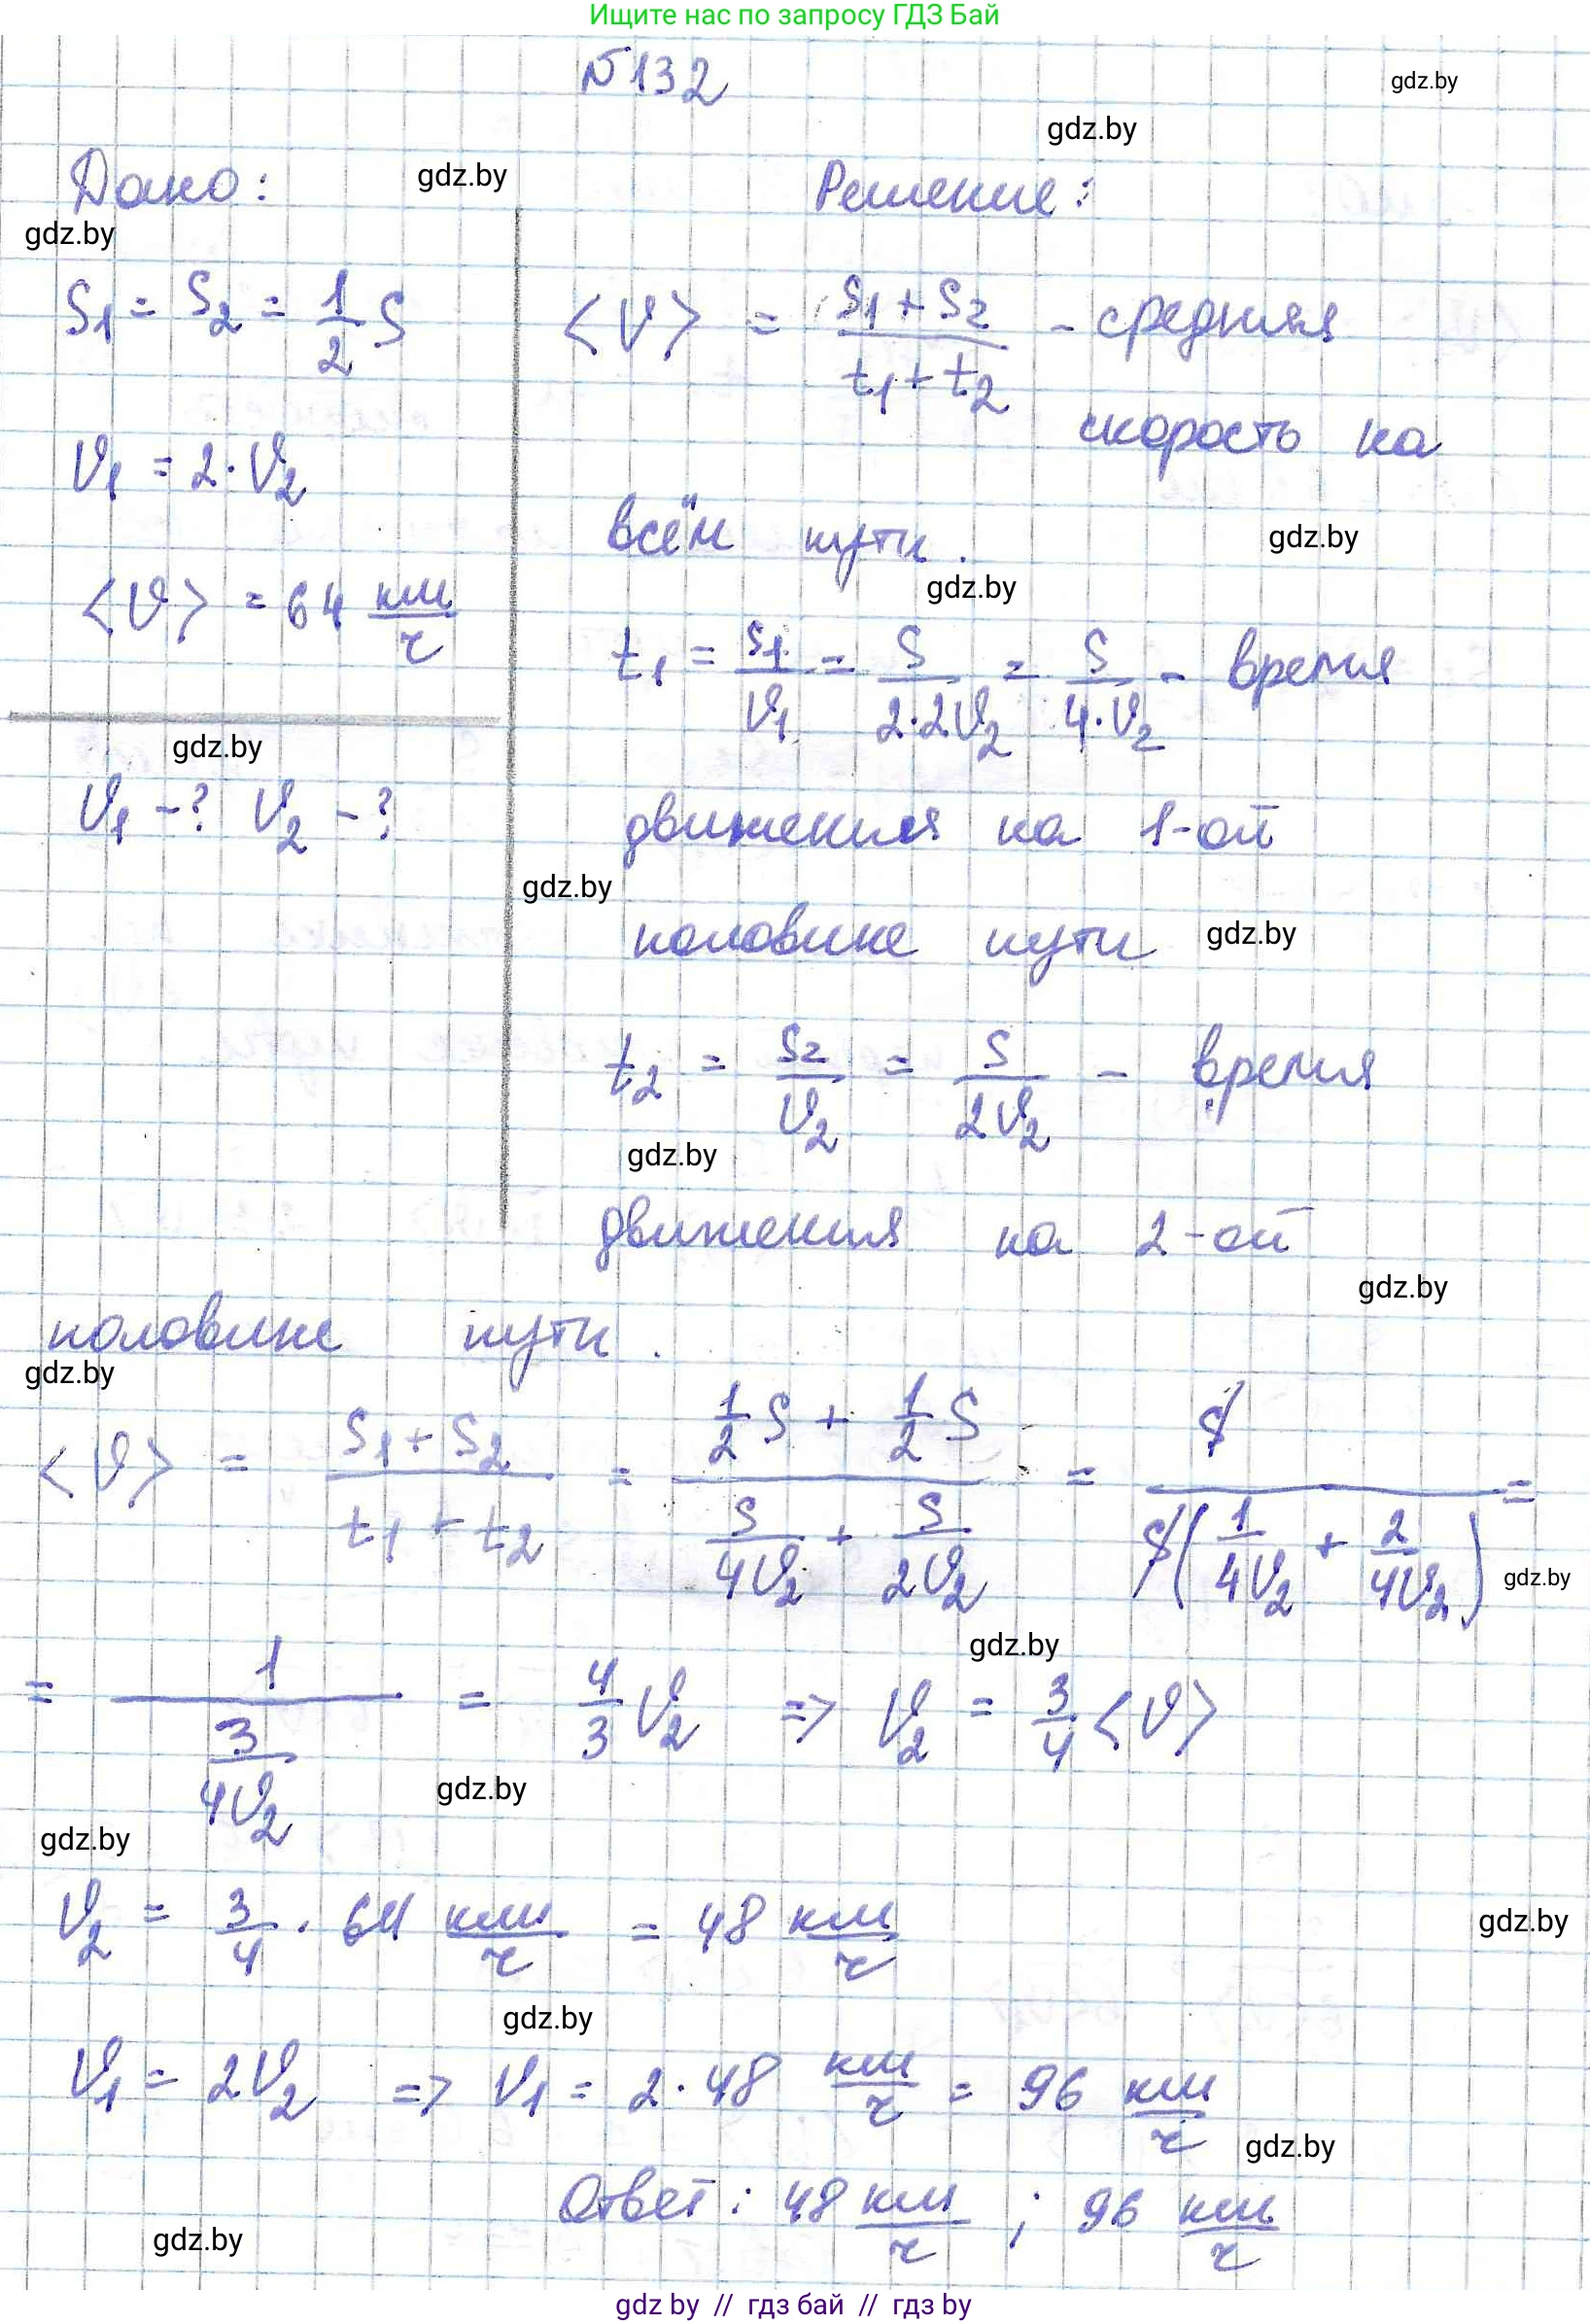 Ищите нас по запросу ГДЗ Бай
№132
gdz.by
gdz.by
Дано:
gdz.by
Решение:
gdz.by
S₁ = S₂ = 1/2 S
<V> = (S₁ + S₂)/(t₁ + t₂) - средняя
скорость на
V₁ = 2·V₂
всём пути.
gdz.by
gdz.by
<V> = 64 км/ч
t₁ = S₁/V₁ = S/(2·2V₂) = S/(4·V₂) - время
gdz.by
V₁ -? V₂ -?
движения на 1-ой
gdz.by
половине пути
gdz.by
t₂ = S₂/V₂ = S/(2V₂) - время
gdz.by
движения на 2-ой
gdz.by
половине пути.
gdz.by
<V> = (S₁ + S₂)/(t₁ + t₂) = (1/2 S + 1/2 S)/(S/(4V₂) + S/(2V₂)) = S/(S(1/(4V₂) + 2/(4V₂))) =
gdz.by
gdz.by
= 1/(3/(4V₂)) = 4/3 V₂ => V₂ = 3/4 <V>
gdz.by
gdz.by
V₂ = 3/4 · 64 км/ч = 48 км/ч
gdz.by
gdz.by
V₁ = 2V₂ => V₁ = 2·48 км/ч = 96 км/ч
gdz.by
Ответ: 48 км/ч ; 96 км/ч
gdz.by
gdz by // гдз бай // гдз by